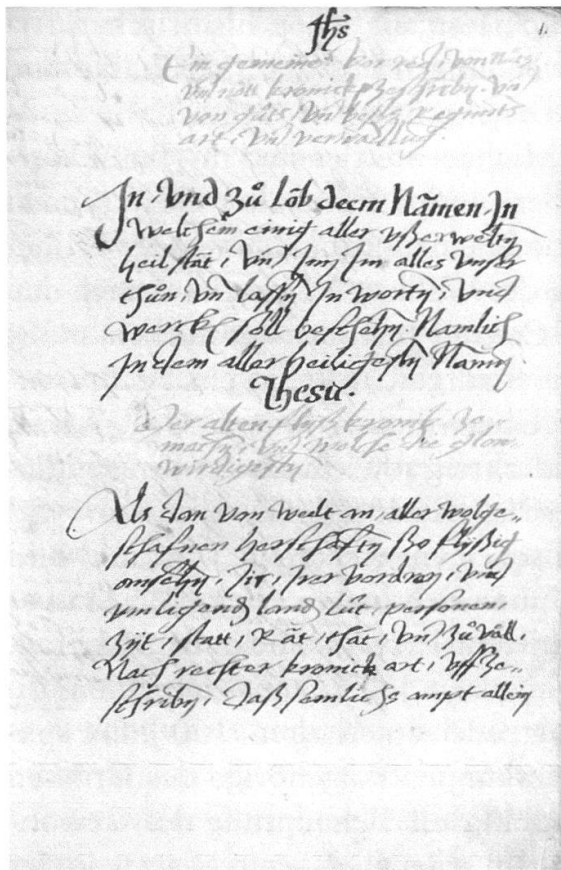 Jhs 1.
Ein gemeine vorred, von nutz
vnd nott kronick ze schriben. vnd
von gůts, vnd bösens Regiments
art, vnd verwaltung.
In, Vnd zů lob deem Namen, In
Welchem einig aller vßerwelten
heil stāt, Vnd Inn Im alles vnser
thůn, vnd lassen In worten, vnd
wercken soll beschehen, Namlich
In dem aller heiligesten Namen
Jhesu.
Der alten flyß kronik ze
machen, vnd welche die glou-
wirdigesten
Als dan von welt an, aller wolge-
schafnen herschaften
ansehen, Ir, Irer vordren, vnd
vmligende land, lüt, personen,
Zyt, statt, Rāt, thāt, vnd zůvāll,
Nach rechter kronick art, vff ze-
schriben, daß semlichs ampt allein